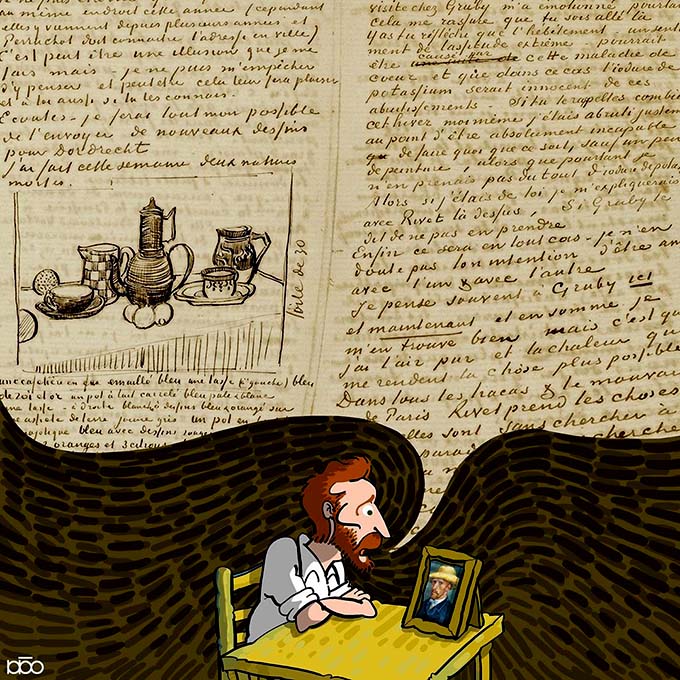 au même endroit cette année (cependant
elles y vinrent depuis plusieurs années et
Perruchot doit connaitre l'adresse en ville)
C'est peut être une illusion que je me
fais mais je ne puis m'empêcher
d'y penser et peutêtre cela leur fera plaisir
et à toi aussi si tu les connais.
Ecoutes – je ferai tout mon possible
de t'envoyer de nouveaux dessins
pour Dordrecht
j'ai fait cette semaine deux natures
mortes.
toile de 30
une cafetière en fer emaillé bleu une tasse (à gauche) bleu
de roi et or un pot à lait carrelé bleu pale & blanc
une tasse – à droite blanche dessins bleu & orangé sur
une assiette de terre jaune gris un pot en
bleu avec dessins rouges
2 oranges et 3 citrons
visite chez Gruby m'a émotionné pourtant
cela me rassure que tu sois allé là
As tu réfléchi que l'hébêtement – un senti
ment de lassitude extrême – pourrait
être causé par cette maladie de
coeur et que dans ce cas l'iodure de
potassium serait innocent de ces
abrutissements. Si tu te rapelles combien
cet hiver moi même j'étais abruti justement
au point d'être absolument incapable
de faire quoi que ce soit, sauf un peu
de peinture, alors que pourtant je
n'en prenais pas du tout d'iodure de potas
Alors si j'étais de toi je m'expliquerais
avec Rivet là dessus. Si Gruby te
dit de ne pas en prendre
Enfin ce sera en tout cas – je n'en
doute pas ton intention d'être ami
avec l'un & avec l'autre
Je pense souvent à Gruby ici
et maintenant et en somme je
m'en trouve bien mais c'est que
j'ai l'air pur et la chaleur qui
me rendent la chose plus possible
Dans tous les tracas & le mauvais
de Paris Rivet prend les choses
elles sont sans chercher à